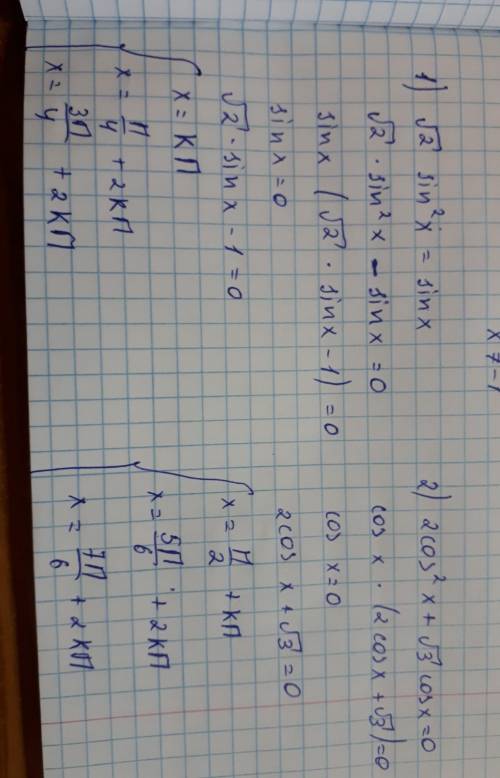 x 7 - 1
1) √2 sin²x = sinx
√2 · sin²x - sinx = 0
sinx (√2 · sinx - 1) = 0
sinx = 0
√2 · sinx - 1 = 0
x = КП
x = П/4 + 2КП
x = 3П/4 + 2КП
2) 2cos²x + √3 cosx = 0
cos x · (2cosx + √3) = 0
cos x = 0
2cos x + √3 = 0
x = П/2 + КП
x = 5П/6 + 2КП
x = 7П/6 + 2КП